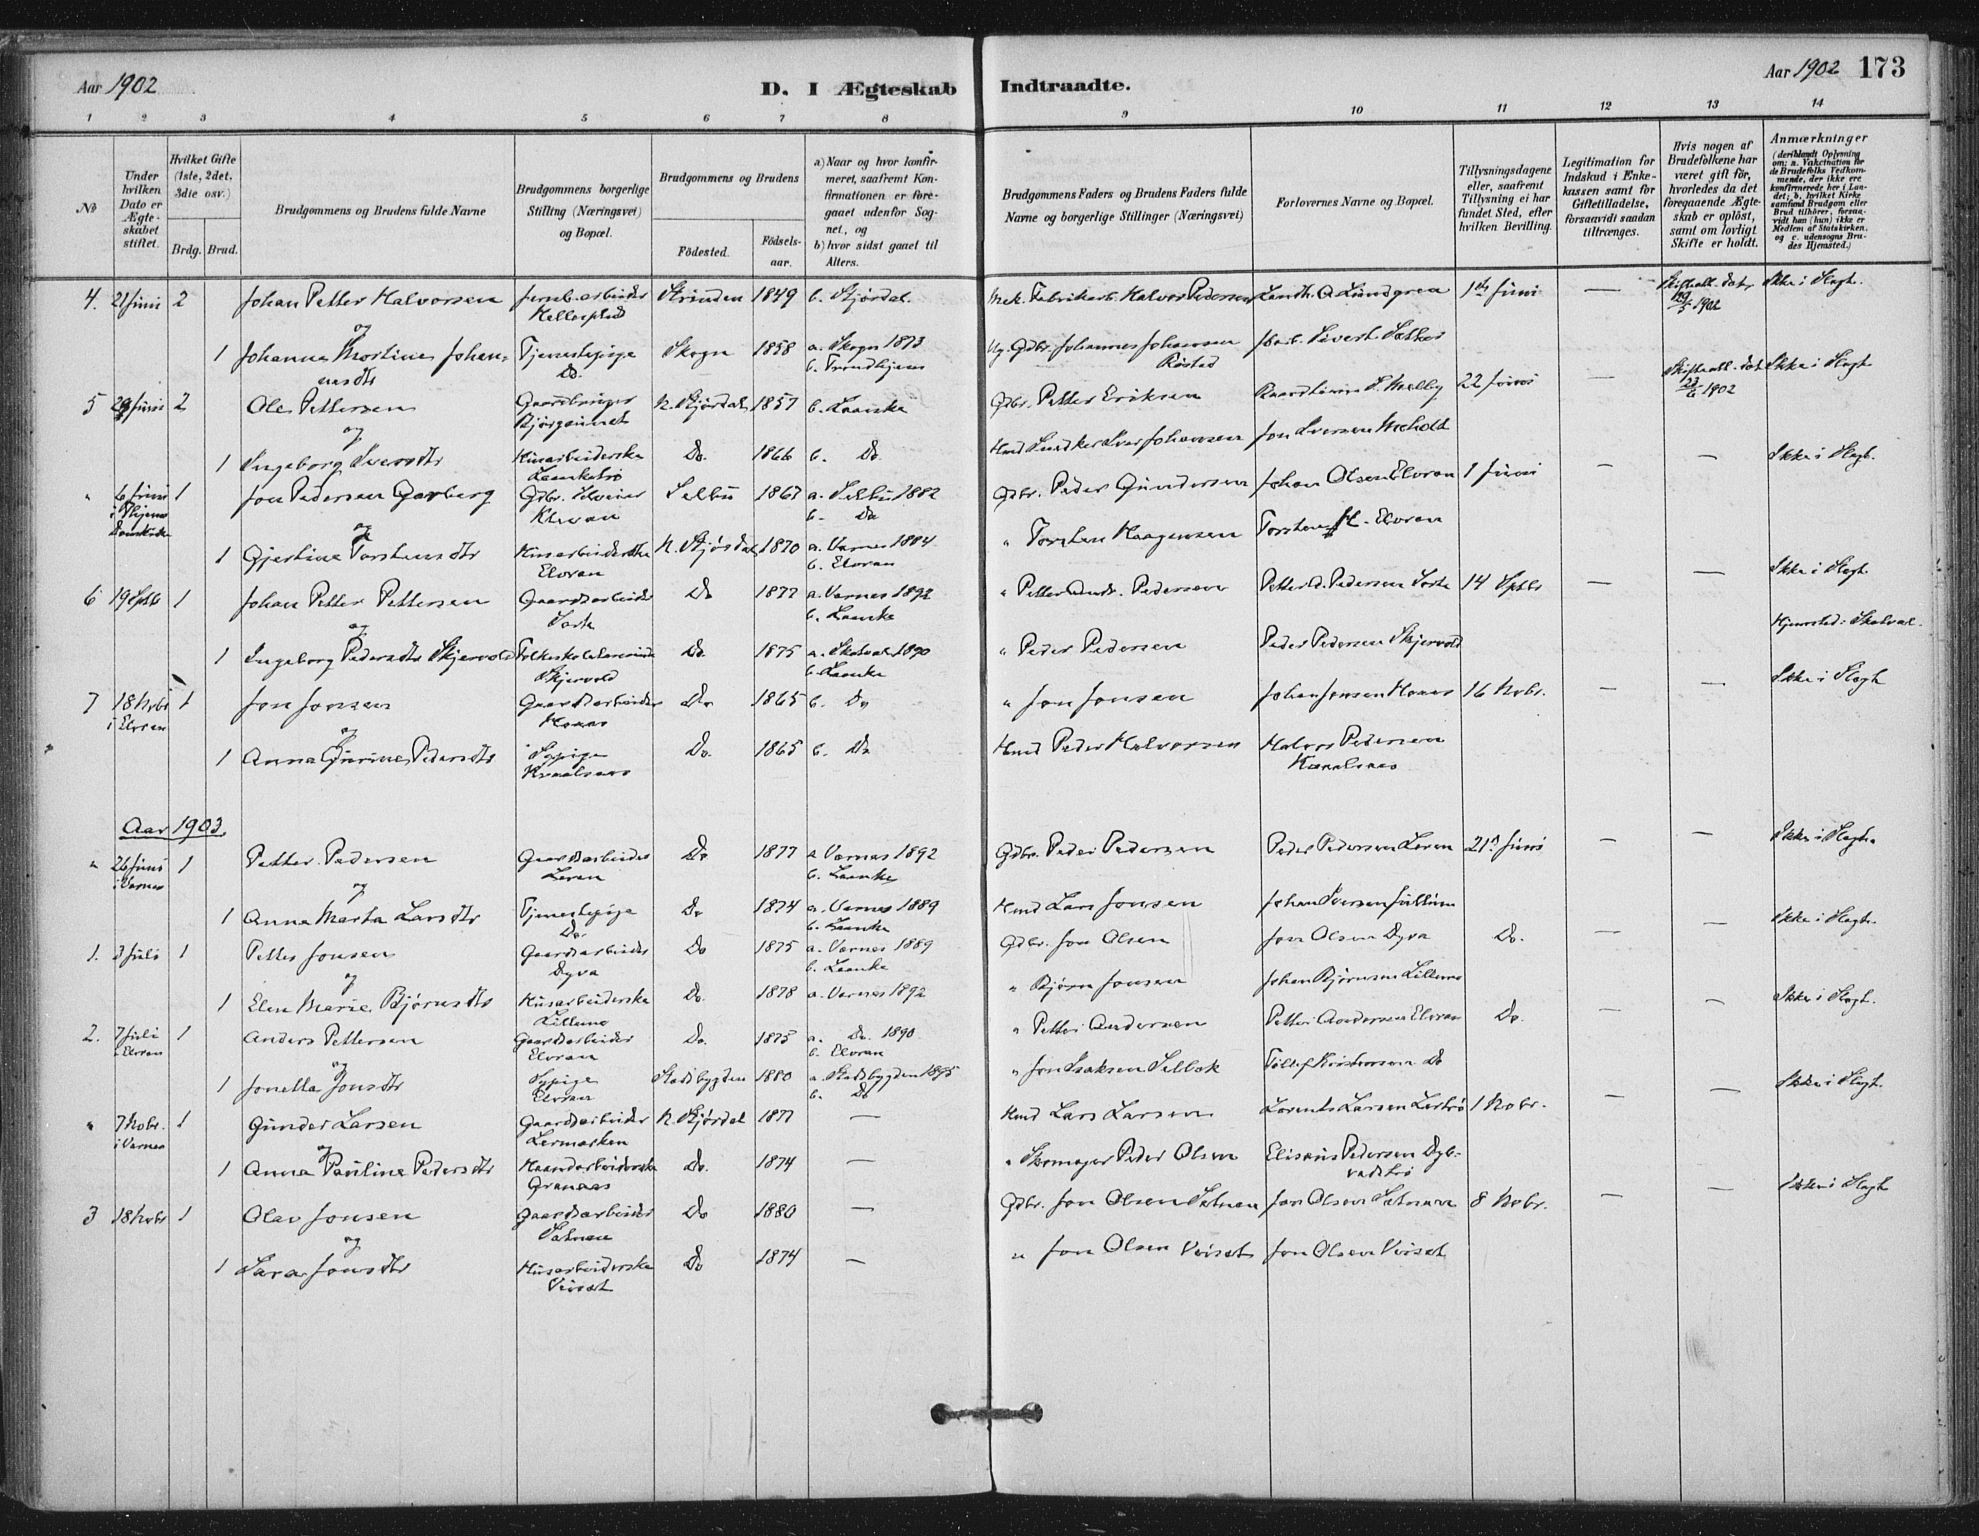 Aar 1902
D. I Ægteskab Indtraadte.
Aar 1902 173
1 2 3 4 5 6 7 8 9 10 11 12 13 14
No
Under hvilken Dato er Ægteskabet stiftet.
Hvilket Gifte (1ste, 2det, 3die osv.)
Brdg. Brud.
Brudgommens og Brudens fulde Navne
Brudgommens borgerlige Stilling (Næringsvei) og Bopæl.
Brudgommens og Brudens
Fødested. Fødselsaar.
a) Naar og hvor konfirmeret, saafremt Konfirmationen er foregaaet udenfor Sognet, og
b) hvor sidst gaaet til Alters.
Brudgommens Faders og Brudens Faders fulde Navne og borgerlige Stillinger (Næringsvei)
Forlovernes Navne og Bopæl.
Tillysningsdagene eller, saafremt Tillysning ei har fundet Sted, efter hvilken Bevilling.
Legitimation for Indskud i Enkekassen samt for Giftetilladelse, forsaavidt saadan tiltrænges.
Hvis nogen af Brudefolkene har været gift før, hvorledes da det foregaaende Ægteskab er opløst, samt om lovligt Skifte er holdt.
Anmærkninger (deriblandt Oplysning om: a. Vakcination for de Brudefolks Vedkommende, der ikke ere konfirmerede her i Landet; b. hvilket Kirkesamfund Brudgom eller Brud tilhører, forsaavidt han (hun) ikke er Medlem af Statskirken, og c. udensogns Brudes Hjemsted.)
4. 21 Juni 2 Johan Petter Halvorsen Jernb.arbeider Hellesplad Strinden 1849 b. Stjørdal. Mek. Fabrikarb. Halvor Pedersen Landh. O. Lundgren 1ste Juni — Skifteatt. dat. 1902 Ikke i Slagt.
og
1 Johanne Martine Johannesdtr Tjenestepige Do. Skogn 1858 a. Skogn 1873 b. Trondhjem Gdbr. Johannes Johansen Røstad Sivert Sæther
5 29 Juni 2 Ole Pettersen Gaardbruger Bjørganmet N. Stjørdal 1857 b. Laanke Gdbr. Petter Eriksen Melby 22 Juni — Skifteatt. dat 1902 Ikke i Slagt
og
1 Ingeborg Iversdtr Husarbeiderske Do. 1866 b. Do. Hmd Iver Johansen Jon Iversen
" 6 Juni i Thjems Domkirke 1 Jon Pedersen Garberg Gdbr. Elvran Selbu 1867 a. Selbu 1882 b. Do Gdbr. Peder Gundersen Johan Olsen Elvran 1 Juni — — Ikke i Slagt.
og
1 Gjertine Torstensdtr Husarbeiderske Elvran N. Stjørdal 1870 a. Værnes 1884 b. Elvran " Torsten Haagensen Torsten H. Elvran
6 19 Septb 1 Johan Petter Pettersen Gaardsarbeider Sorte Do 1877 a. Værnes 1892 b. Laanke " Petter Andr. Pedersen Petter A. Pedersen Sorte 14 Septbr — — Ikke i Slagt.
og
1 Ingeborg Pedersdtr Skjervold Folkeskolelærerinde Skjervold Do. 1875 a. Skatval 1890 b. Laanke " Peder Pedersen Peder Pedersen Skjervold Hjemsted: Skatval.
7 18 Novbr i Elvran 1 Jon Jonsen Gaardsarbeider Moaas Do 1865 b. Do " Jon Jonsen Johan Jonsen Moaas 16 Nobr. — — Ikke i Slagt
og
1 Anna Gurine Pedersdtr Sypige Kvaalsaas Do. 1865 b. Do Hmd Peder Halvorsen Halvor Pedersen Kvaalsaas
Aar 1903.
" 26 Juni i Værnes 1 Petter Pedersen Gaardsarbeider Leren Do 1877 a Værnes 1892 b. Laanke Gdbr. Peder Pedersen Peder Pedersen Leren 21. Juni — — Ikke i Slagt.
og
1 Anna Marta Larsdtr Tjenestepige Do. Do 1874 a. Værnes 1889 b. Laanke Hmd Lars Jonsen Johan Iversen
1. 3 Juli 1 Petter Jonsen Gaardsarbeider Dyva Do 1875 a. Værnes 1889 b. Laanke Gdbr. Jon Olsen Jon Olsen Dyva Do. — — Ikke i Slagt.
og
1 Elen Marie Bjørnsdtr Husarbeiderske Lillemo Do. 1878 a. Værnes 1892 " Bjørn Jonsen Johan Bjørnsen Lillemo
2. 7 Juli i Elvran 1 Anders Pettersen Gaardsarbeider Elvran Do. 1875 a. Do. 1890 b. Elvran " Petter Andersen Petter Andersen Elvran Do. — Ikke i Slagt.
og
1 Jonetta Jonsdtr Sypige Elvran Stadsbygden 1880 a. Stadsbygden 1895 b. Do " Jon Isaksen Selbæk Tollef Kristensen Do
" 7 Nobr. i Værnes 1 Gunder Larsen Gaardsarbeider Lermarken N. Stjørdal 1877 — Hmd Lars Larsen Lorents Larsen Lertrø 1 Nobr. — — Ikke i Slagt.
og
1 Anna Pauline Pedersdtr Haandarbeiderske Granaas Do. 1874 — " Skomager Peder Olsen Elisæus Pedersen Dybvadstrø
3 18 Nobr 1 Olav Jonsen Gaardsarbeider Sætnan Do 1880 — Gdbr. Jon Olsen Sætnan Jon Olsen Sætnan 8 Nobr. — — Ikke i Slagt
og
1 Sara Jonsdtr Husarbeiderske Veiset Do 1874 — " Jon Olsen Veiset Jon Olsen Veiset